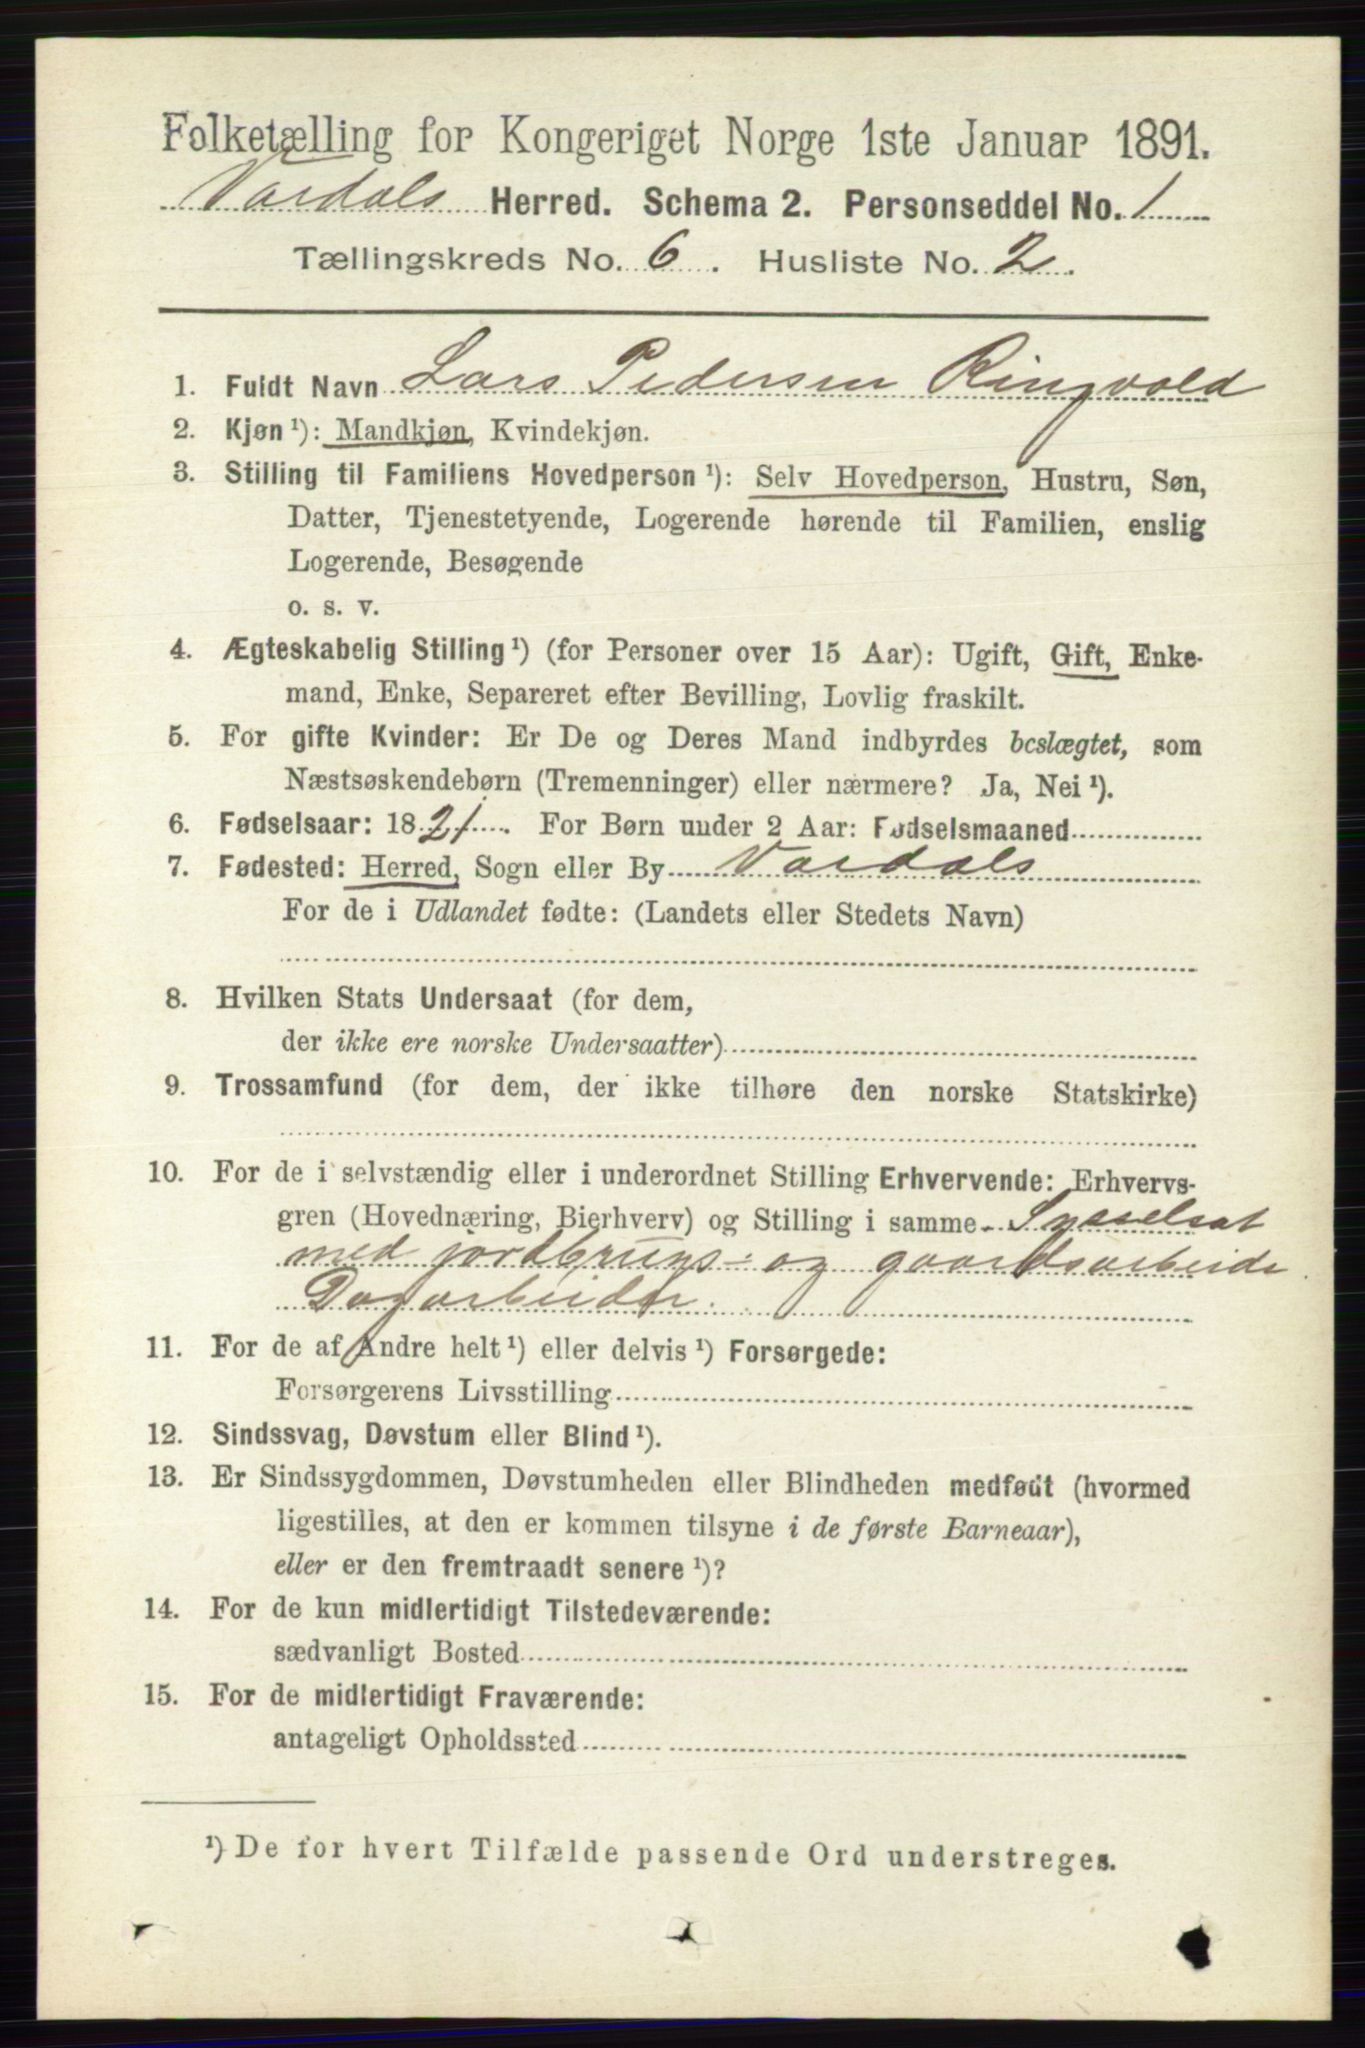 Folketælling for Kongeriget Norge 1ste Januar 1891.
Vardals Herred. Schema 2. Personseddel No. 1
Tællingskreds No. 6. Husliste No. 2.
1. Fuldt Navn Lars Pedersen Ringvold
2. Kjøn ¹): Mandkjøn, Kvindekjøn.
3. Stilling til Familiens Hovedperson ¹): Selv Hovedperson, Hustru, Søn,
Datter, Tjenestetyende, Logerende hørende til Familien, enslig
Logerende, Besøgende
o. s. v.
4. Ægteskabelig Stilling ¹) (for Personer over 15 Aar): Ugift, Gift, Enke-
mand, Enke, Separeret efter Bevilling, Lovlig fraskilt.
5. For gifte Kvinder: Er De og Deres Mand indbyrdes beslægtet, som
Næstsøskendebørn (Tremenninger) eller nærmere? Ja, Nei ¹).
6. Fødselsaar: 1821. For Børn under 2 Aar: Fødselsmaaned
7. Fødested: Herred, Sogn eller By Vardals
For de i Udlandet fødte: (Landets eller Stedets Navn)
8. Hvilken Stats Undersaat (for dem,
der ikke ere norske Undersaatter)
9. Trossamfund (for dem, der ikke tilhøre den norske Statskirke)
10. For de i selvstændig eller i underordnet Stilling Erhvervende: Erhvervs-
gren (Hovednæring, Bierhverv) og Stilling i samme Sysselsat
med jordbrugs- og gaardsarbeide
Dagarbeider.
11. For de af Andre helt ¹) eller delvis ¹) Forsørgede:
Forsørgerens Livsstilling
12. Sindssvag, Døvstum eller Blind ¹).
13. Er Sindssygdommen, Døvstumheden eller Blindheden medfødt (hvormed
ligestilles, at den er kommen tilsyne i de første Barneaar),
eller er den fremtraadt senere ¹)?
14. For de kun midlertidigt Tilstedeværende:
sædvanligt Bosted
15. For de midlertidigt Fraværende:
antageligt Opholdssted
¹) De for hvert Tilfælde passende Ord understreges.